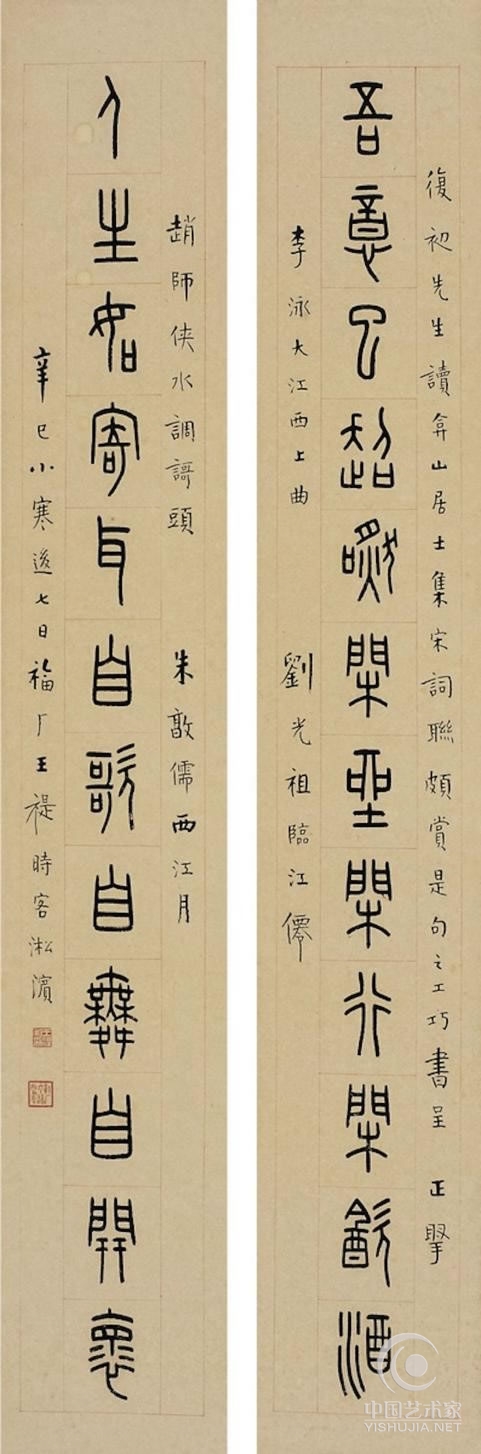 復初先生讀弇山居士集宋詞聯頗賞是句之工巧書呈 正掔
吾意已超然閑坐閑行閑飲酒
李泳大江西上曲 劉光祖臨江僊
趙師俠水調謌頭 朱敦儒西江月
人生如寄耳自歌自舞自開懷
辛巳小寒後七日福厂王禔時客淞濱
中国艺术家
YISHUJIA.NET